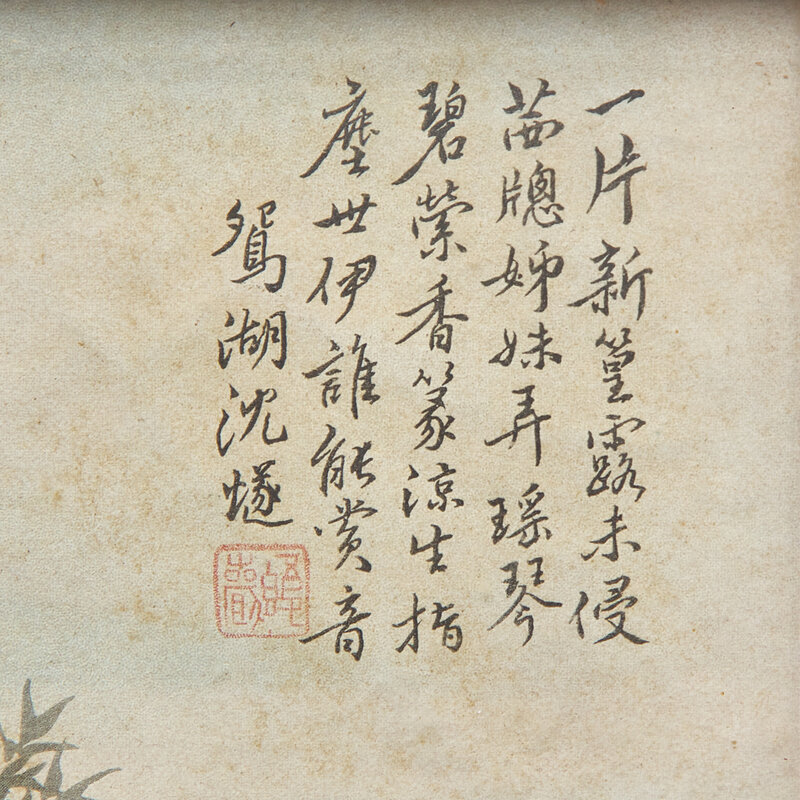 一片新篁露未侵
茜牕姊妹弄瑶琴
碧縈香篆涼生指
塵世伊誰能賞音
鴛湖沈燧